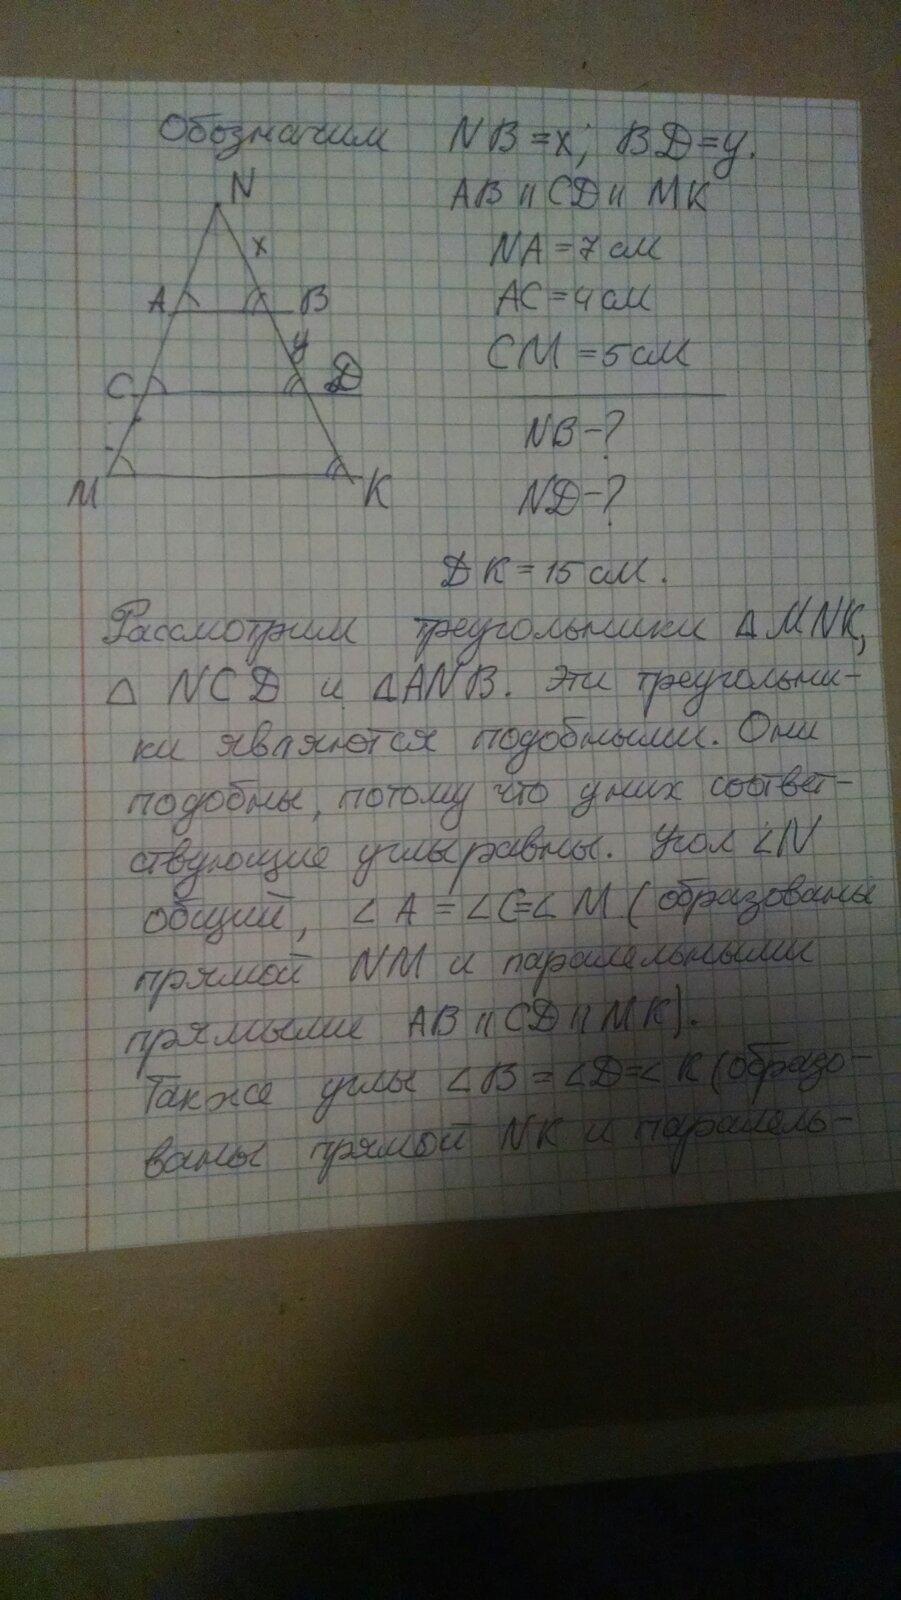 Обозначим NB = x; BD = y.
AB || CD || MK
NA = 7 см
AC = 4 см
CM = 5 см
NB - ?
ND - ?
DK = 15 см.
N
x
A
B
y
C
D
M
K
Рассмотрим треугольники △MNK,
△ NCD и △ANB. Эти треугольни-
ки являются подобными. Они
подобны, потому что у них соответ-
ствующие углы равны. Угол ∠N
общий, ∠A = ∠C = ∠M (образованы
прямой NM и паралельными
прямыми AB || CD || MK).
Также углы ∠B = ∠D = ∠K (образо-
ваны прямой NK и паралель-